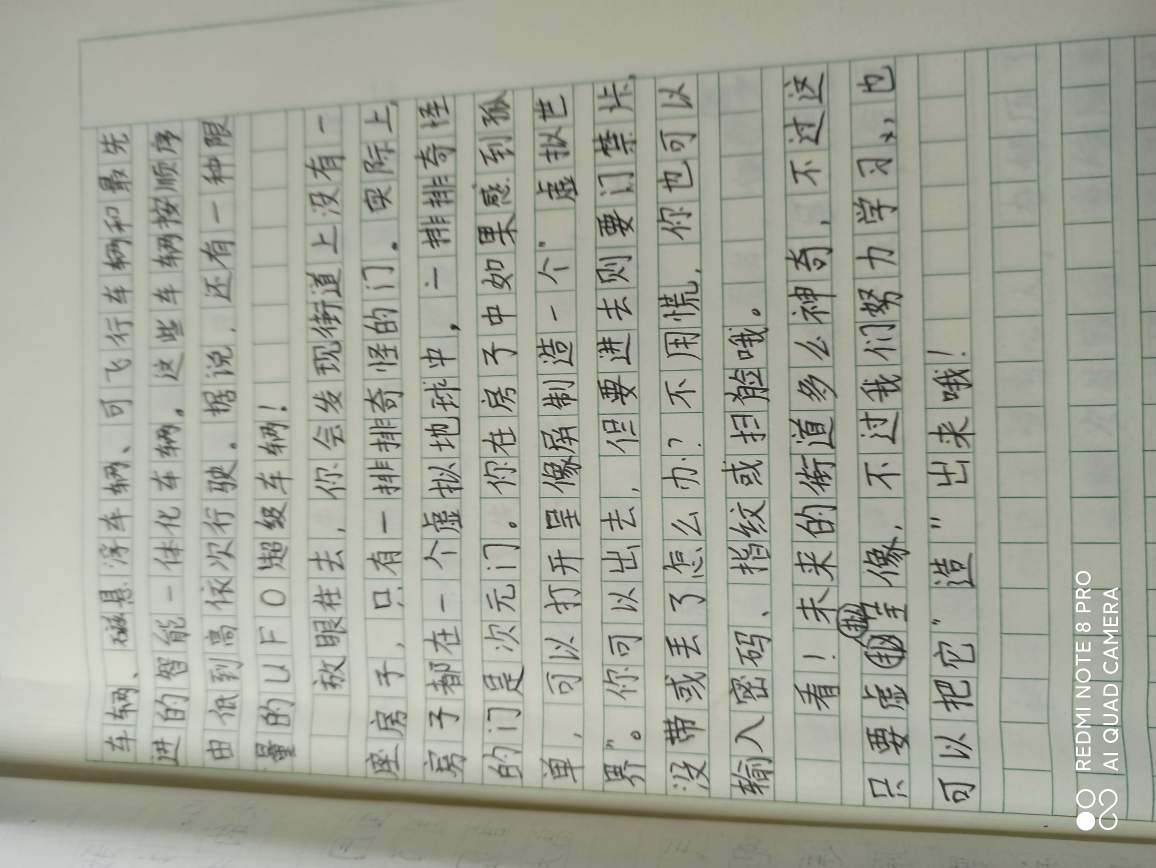 车辆、磁悬浮车辆、可飞行车辆和最先
进的智能一体化车辆。这些车辆按顺序
由低到高依次行驶。据说,还有一种限
量的UFO超级车辆!
放眼在去,你会发现街道上没有一
座房子,只有一排排奇怪的门。实际上,
房子都在一个虚拟地球中,一排排奇怪
的门是次元门。你在房子中如果感到孤
单,可以打开呈像屏制造一个"虚拟世
界"。你可以出去,但要进去则要门禁卡,
没带或丢了怎么办?不用慌,你也可以
输入密码、指纹或扫脸哦。
看!未来的街道多么神奇,不过这
只要虚拟呈像,不过我们努力学习,也
可以把它"造"出来哦!
REDMI NOTE 8 PRO
AI QUAD CAMERA